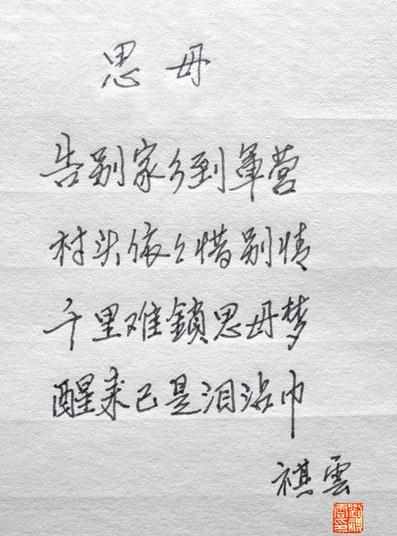 思母
告别家乡到軍营
村头依々惜别情
千里难鎖思母梦
醒来已是泪沾巾
祺雲